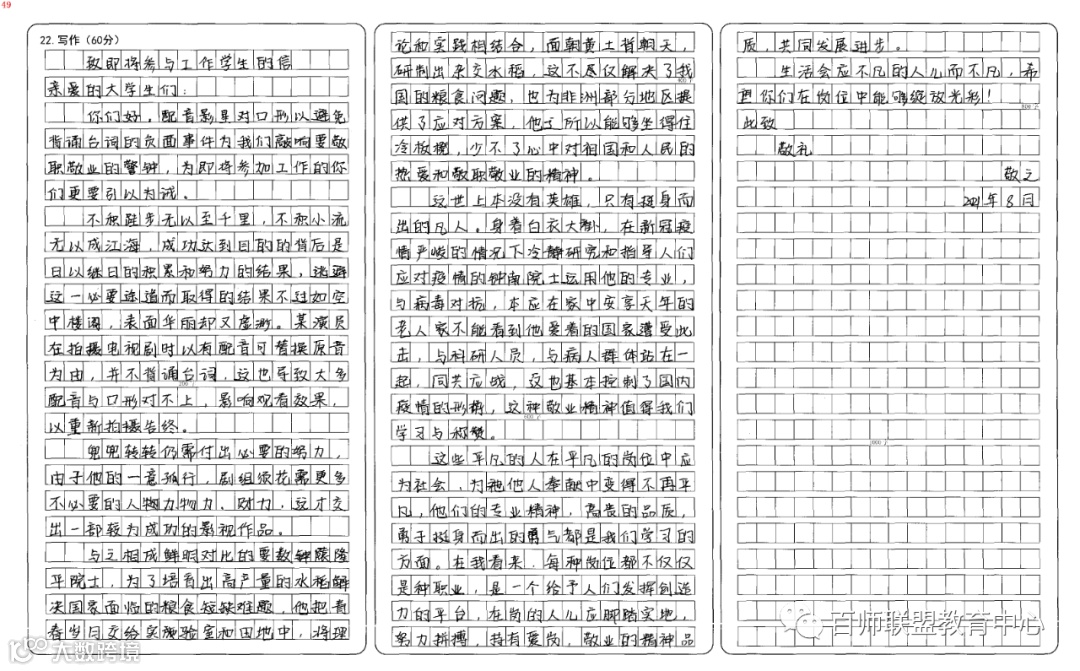 49
22. 写作（60分）
致即将参与工作学生的信
亲爱的大学生们：
你们好，配音影星对口形以避免
背诵台词的负面事件为我们敲响要敬
职敬业的警钟，为即将参加工作的你
们更要引以为诫。
不积跬步无以至千里，不积小流
无以成江海，成功达到目的的背后是
日以继日的积累和努力的结果，逃避
这一必要途道而取得的结果不过如空
中楼阁，表面华丽却又虚渺。某演员
在拍摄电视剧时以有配音可替换原音
为由，并不背诵台词，这也导致大多
配音与口形对不上，影响观看效果，
以重新拍摄告终。
兜兜转转仍需付出必要的努力，
由于他的一意孤行，剧组须花需更多
不必要的人物力物力、财力，这才交
出一部较为成功的影视作品。
与之相成鲜明对比的要数钟袁隆
平院士，为了培育出高产量的水稻解
决国家面临的粮食短缺难题，他把青
春岁月交给实验室和田地中，将理
论和实践相结合，面朝黄土背朝天，
研制出杂交水稻，这不尽仅解决了我
国的粮食问题，也为非洲部分地区提
供了应对方案，他之所以能够坐得住
冷板凳，少不了心中对祖国和人民的
热爱和敬职敬业的精神。
这世上本没有英雄，只有挺身而
出的凡人。身着白衣大褂，在新冠疫
情严峻的情况下冷静研究和指导人们
应对疫情的钟南院士运用他的专业，
与病毒对抗，本应在家中安享天年的
老人家不能看到他爱着的国家遭受此
击，与科研人员，与病人群体站在一
起，同共应战，这也基本控制了国内
疫情的形势，这种敬业精神值得我们
学习与称赞。
这些平凡的人在平凡的岗位中应
为社会，为他人奉献中变得不再平
凡，他们的专业精神，高贵的品质，
勇于挺身而出的勇与都是我们学习的
方面。在我看来，每种岗位都不仅仅
是种职业，是一个给予人们发挥创造
力的平台，在岗的人儿应脚踏实地，
努力拼搏，持有爱岗，敬业的精神品
质，共同发展进步。
生活会应不凡的人儿而不凡，希
望你们在岗位中能够绽放光彩！
此致
敬礼
敬之
2021年8月
百师联盟教育中心
大数跨境